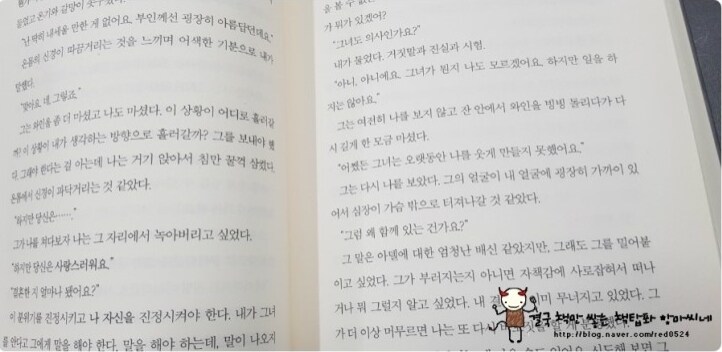 들었고 온기와 갈망이 솟구
"난 딱히 내세울 만한 게 없어요. 부인께선 굉장히 아름답던데요."
온몸의 신경이 따끔거리는 것을 느끼며 어색한 기분으로 내가
말했다.
"맞아요, 네, 그렇죠."
그는 와인을 좀 더 마셨고 나도 마셨다. 이 상황이 어디로 흘러갈
까? 이 상황이 내가 생각하는 방향으로 흘러갈까? 그를 보내야 했
다. 그래야 한다는 걸 아는데 나는 거기 앉아서 침만 꿀꺽 삼켰다.
온몸에서 신경이 파닥거리는 것 같았다.
"하지만 당신은……."
그가 나를 쳐다보자 나는 그 자리에서 녹아버리고 싶었다.
"하지만 당신은 사랑스러워요."
"결혼한 지 얼마나 됐어요?"
이 분위기를 진정시키고 나 자신을 진정시켜야 한다. 내가 그녀
를 안다고 그에게 말을 해야 한다. 말을 해야 하는데, 말이 나오지
을 볼 수 없
가 뭐가 있겠어?
"그녀도 의사인가요?"
내가 물었다. 거짓말과 진실과 시험.
"아니, 아니에요. 그녀가 뭔지 나도 모르겠어요. 하지만 일을 하
지는 않아요."
그는 여전히 나를 보지 않고 잔 안에서 와인을 빙빙 돌리다가 다
시 길게 한 모금 마셨다.
"어쨌든 그녀는 오랫동안 나를 웃게 만들지 못했어요."
그는 다시 나를 보았다. 그의 얼굴이 내 얼굴에 굉장히 가까이 있
어서 심장이 가슴 밖으로 터져나갈 것 같았다.
"그럼 왜 함께 있는 건가요?"
그 말은 아델에 대한 엄청난 배신 같았지만, 그래도 그를 밀어붙
이고 싶었다. 그가 부러지는지 아니면 자책감에 사로잡혀서 떠나
거나 뭐 그럴지 알고 싶었다. 내 미 무너지고 있었다. 그
가 더 이상 머무르면 나는 또 다시
결국 책만 쌓는 책탑파 앙마씨네
http://blog.naver.com/fred0524